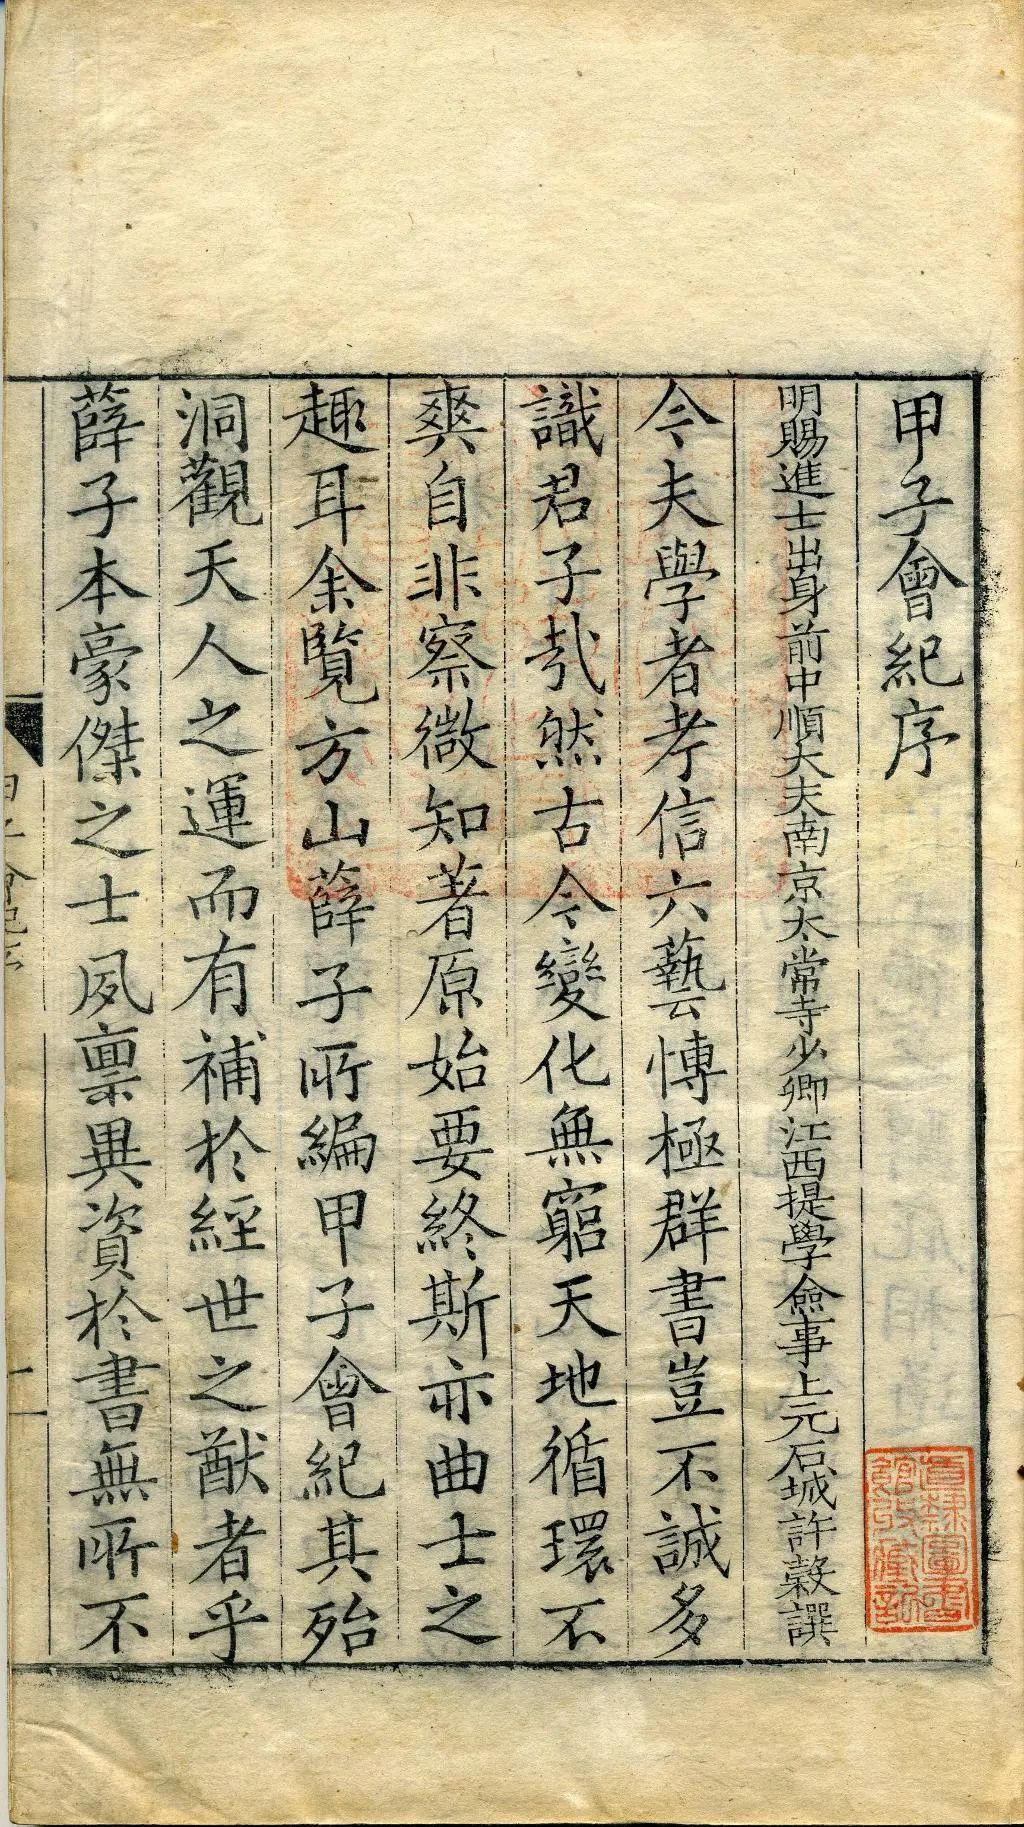 甲子會紀序
明賜進士出身前中順大夫南京太常寺少卿江西提學僉事上元石城許穀譔
今夫學者考信六藝愽極群書豈不誠多
識君子㦲然古今變化無窮天地循環不
爽自非察微知著原始要終斯亦曲士之
趣耳余覽方山薛子所編甲子會紀其殆
洞觀天人之運而有補於經世之猷者乎
薛子本豪傑之士夙禀異資於書無所不
甲子會紀序
一
直隸圖書館收藏記